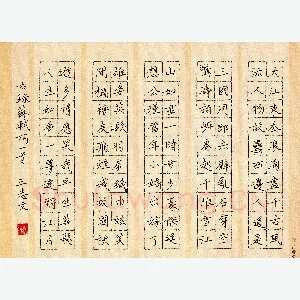 大江東去浪淘盡千古風
流人物故壘西邊人道是
三國周郎赤壁亂石穿空
驚濤拍岸捲起千堆雪江
山如畫一時多少豪傑遙
想公瑾當年小喬初嫁了
雄姿英發羽扇綸巾談笑
間檣櫓灰飛煙滅故國神
遊多情應笑我早生華髮
人生如夢一尊還酹江月
蘇軾詞一首 王志文